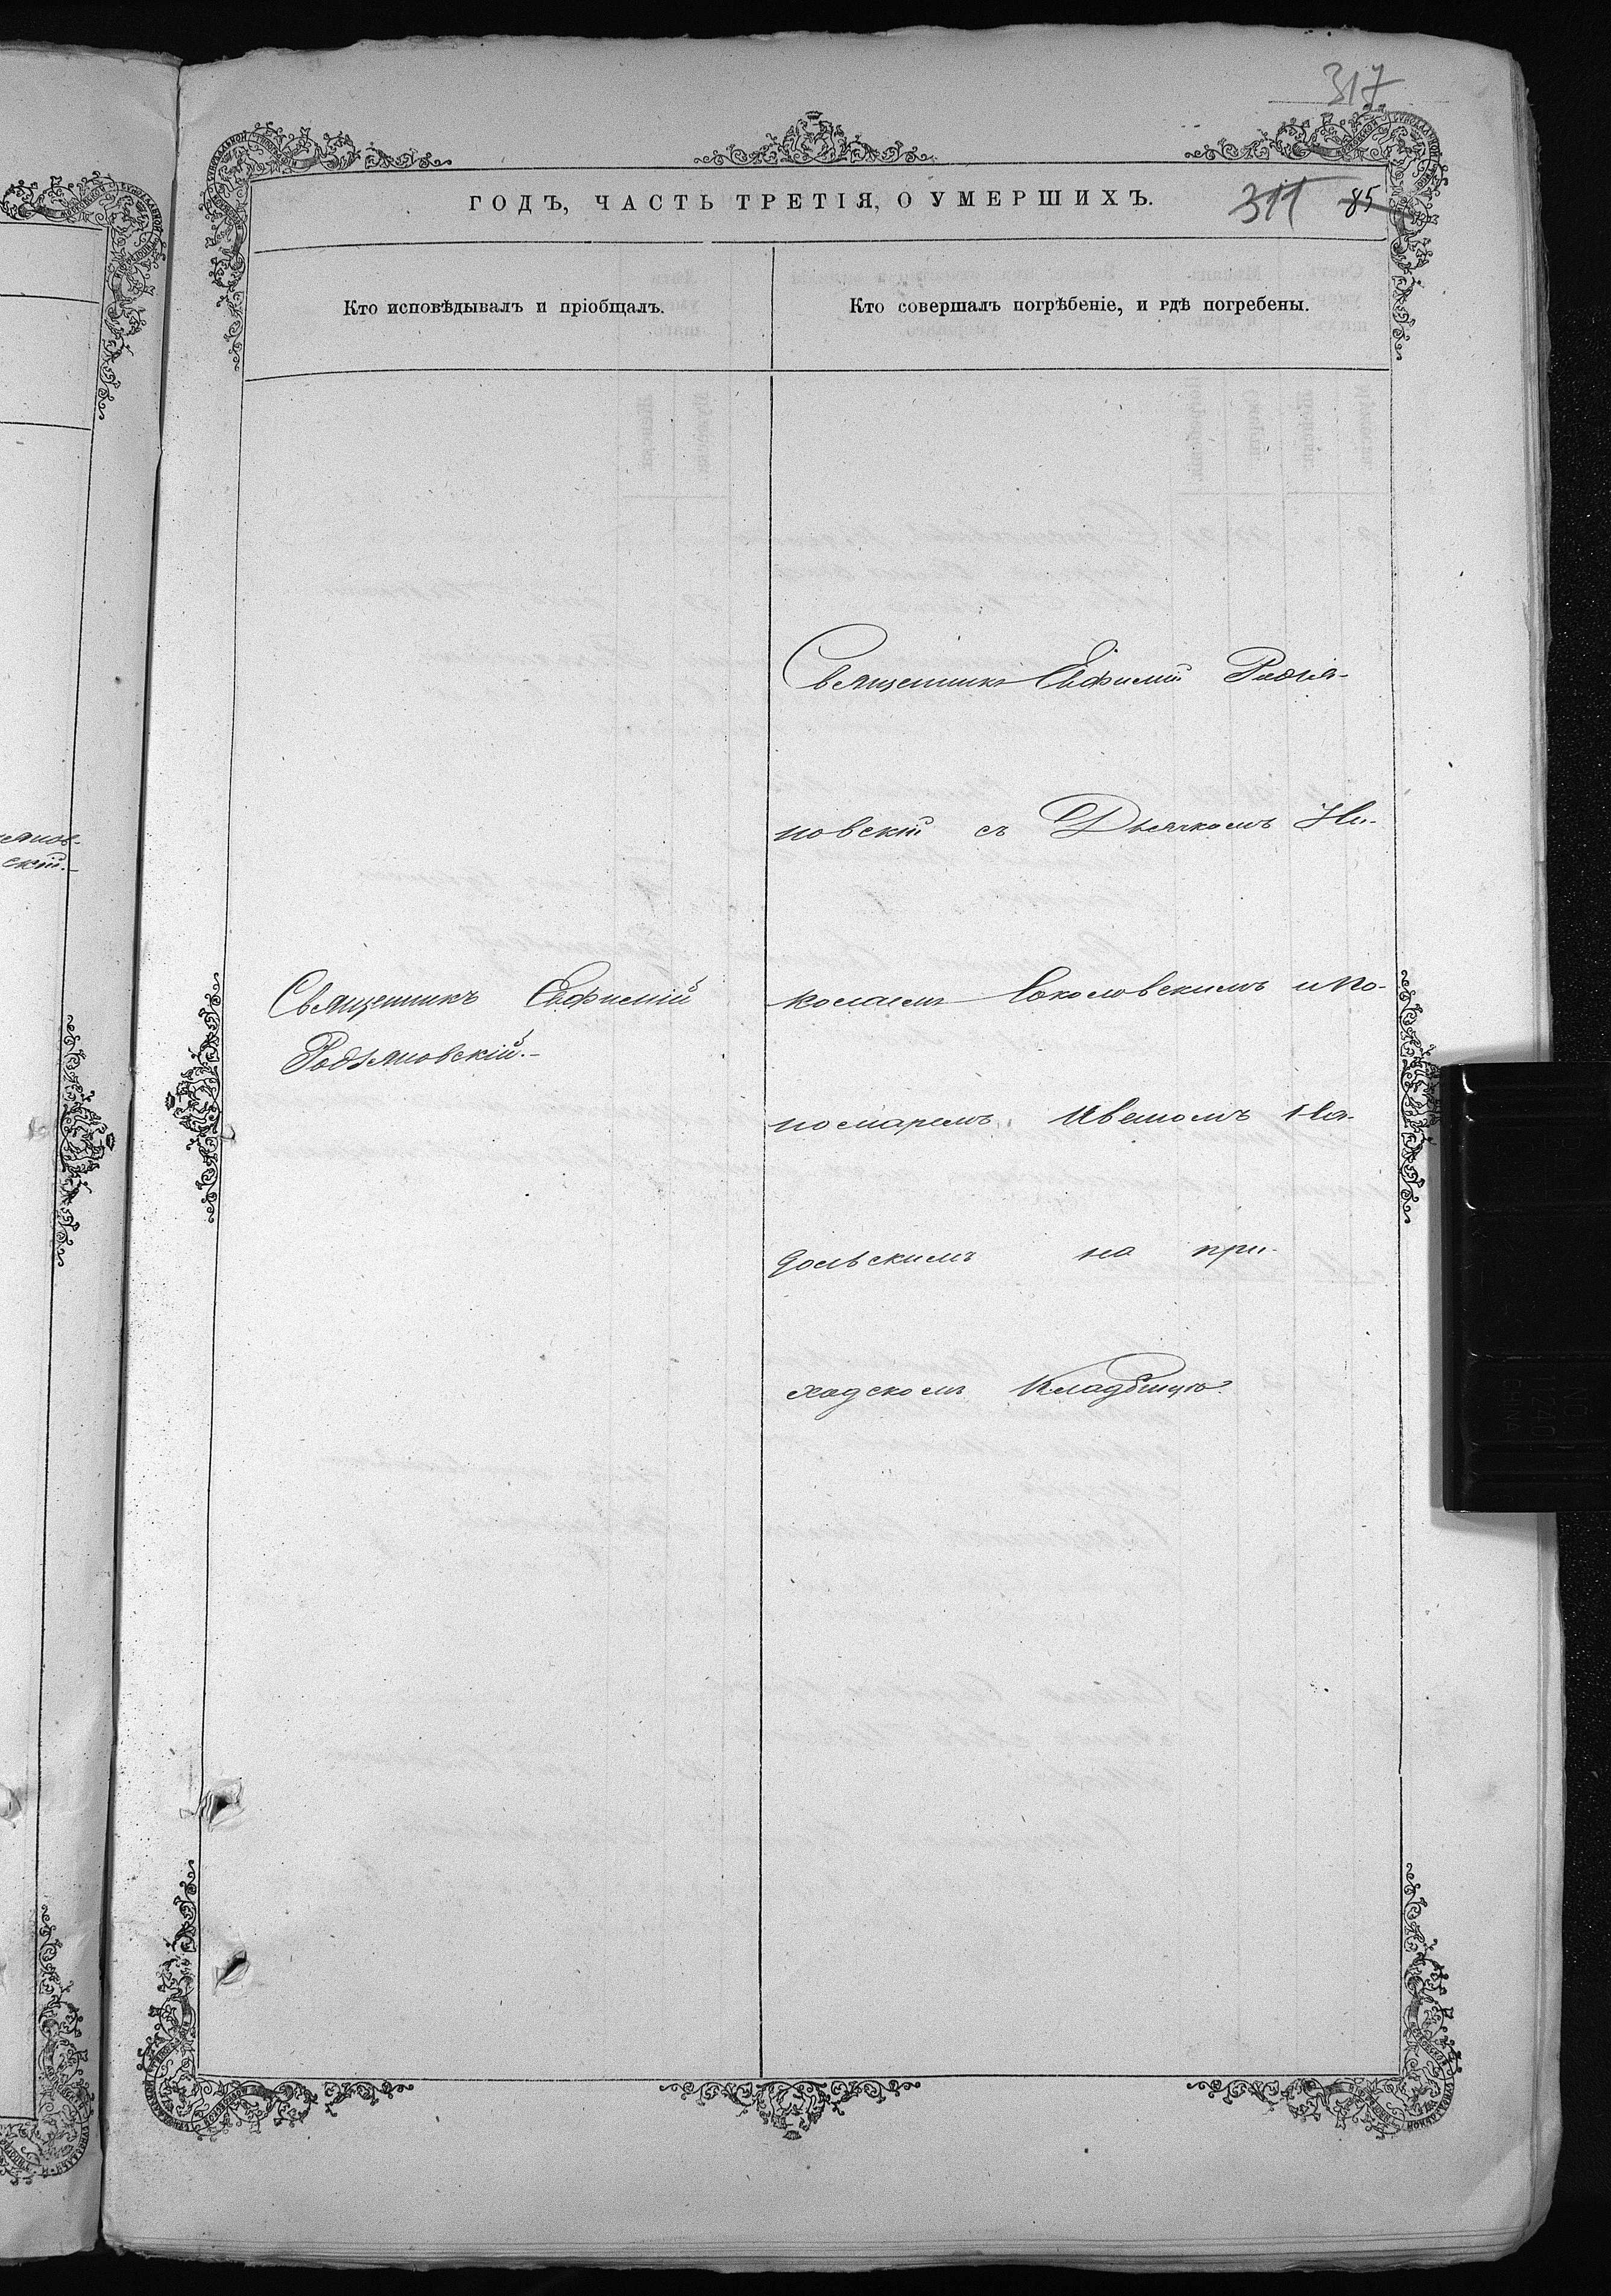 317
ГОДЪ, ЧАСТЬ ТРЕТІЯ, О УМЕРШИХЪ.
311 85
Кто исповѣдывалъ и пріобщалъ.
Кто совершалъ погрѣбеніе, и гдѣ погребены.
Священникъ Евфимій
Родзяновскій.-
Священникъ Евфимій Родзя-
новскій съ Дьячкомъ Ни-
колаемъ Соколовскимъ и По-
номаремъ Иваномъ
на при-
ходскомъ Кладбищѣ
скій.-